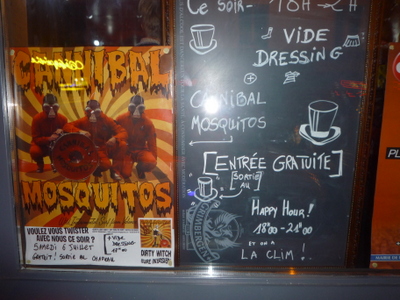 CANNIBAL
MOSQUITOS
VOULEZ VOUS TWISTER
AVEC NOUS CE SOIR ?
SAMEDI 6 JUILLET
GRATUIT! SORTIE AU CHAPEAU
+ VIDE
DRESSING
DIRTY WITCH
Ce SOIR - 18H - 2H
VIDE
DRESSING
+
CANNIBAL
MOSQUITOS
[ENTRÉE GRATUITE]
[SORTIE
AU
HAPPY HOUR!
18h00 - 21h00
ET ON A
LA CLIM!